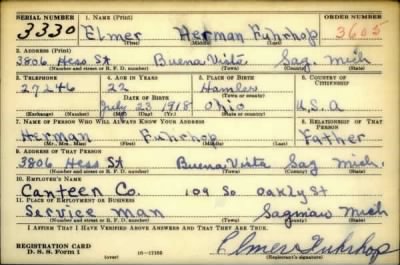 SERIAL NUMBER 1. NAME (Print) ORDER NUMBER
3330 Elmer Herman Fuhrhop 3605
(First) (Middle) (Last)
2. ADDRESS (Print)
3806 Hess St Buena Vista Sag. Mich
(Number and street or R. F. D. number) (Town) (County) (State)
3. TELEPHONE 4. AGE IN YEARS 5. PLACE OF BIRTH 6. COUNTRY OF CITIZENSHIP
27246 22 Hamler
DATE OF BIRTH (Town or county)
July 23 1918 Ohio U.S.A
(Exchange) (Number) (Mo.) (Day) (Yr.) (State or country)
7. NAME OF PERSON WHO WILL ALWAYS KNOW YOUR ADDRESS 8. RELATIONSHIP OF THAT PERSON
Herman Fuhrhop Father
(Mr., Mrs., Miss) (First) (Middle) (Last)
9. ADDRESS OF THAT PERSON
3806 Hess St Buena Vista Sag Mich.
(Number and street or R. F. D. number) (Town) (County) (State)
10. EMPLOYER'S NAME
Canteen Co. 109 So Oakly St
11. PLACE OF EMPLOYMENT OR BUSINESS
Service man Saginaw Mich
(Number and street or R. F. D. number) (Town) (County) (State)
I AFFIRM THAT I HAVE VERIFIED ABOVE ANSWERS AND THAT THEY ARE TRUE.
REGISTRATION CARD
D. S. S. Form 1 (over) 16-17105 Elmer Fuhrhop
(Registrant's signature)